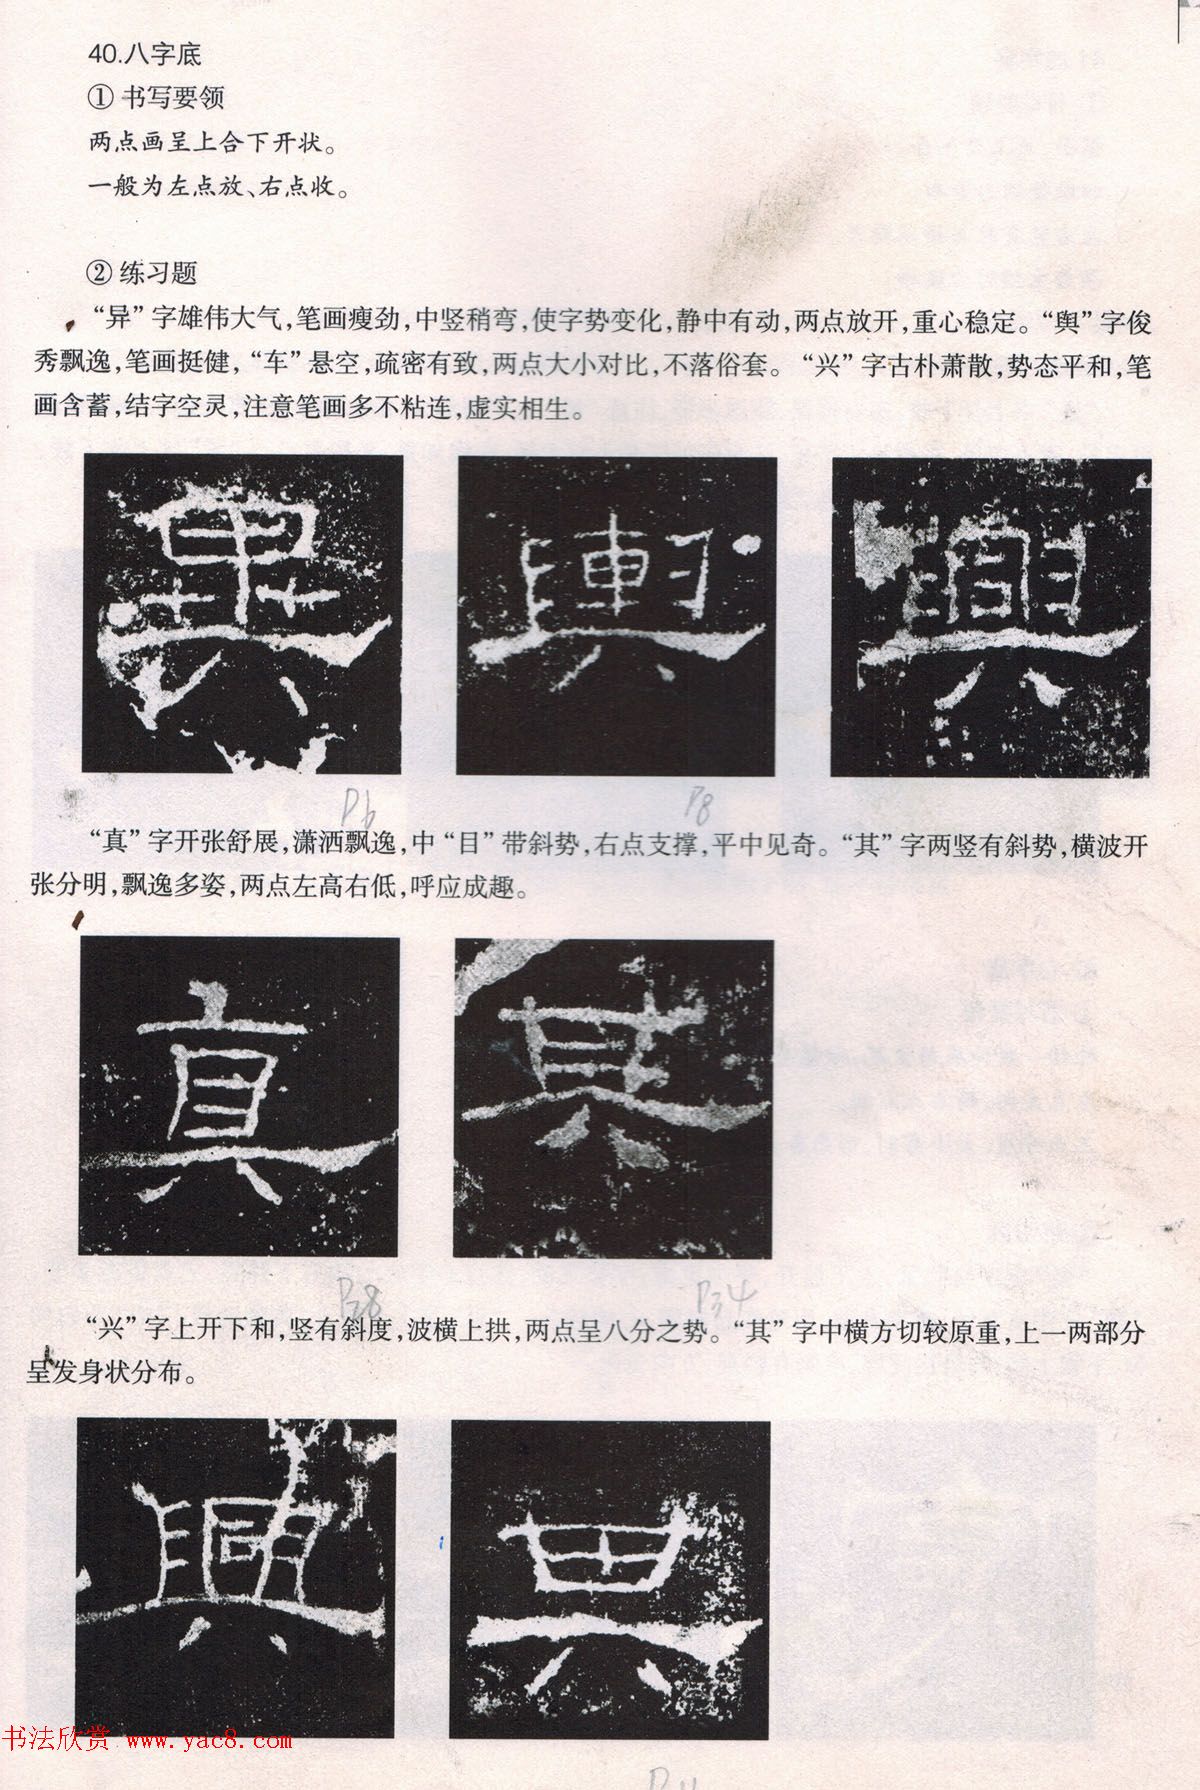 40.八字底
① 书写要领
两点画呈上合下开状。
一般为左点放、右点收。
② 练习题
“异”字雄伟大气,笔画瘦劲,中竖稍弯,使字势变化,静中有动,两点放开,重心稳定。“舆”字俊
秀飘逸,笔画挺健,“车”悬空,疏密有致,两点大小对比,不落俗套。“兴”字古朴萧散,势态平和,笔
画含蓄,结字空灵,注意笔画多不粘连,虚实相生。
異 輿 興
P6 P8
“真”字开张舒展,潇洒飘逸,中“目”带斜势,右点支撑,平中见奇。“其”字两竖有斜势,横波开
张分明,飘逸多姿,两点左高右低,呼应成趣。
真 其
P38 P34
“兴”字上开下和,竖有斜度,波横上拱,两点呈八分之势。“其”字中横方切较原重,上一两部分
呈发身状分布。
興 其
P11
书法欣赏 www.yac8.com